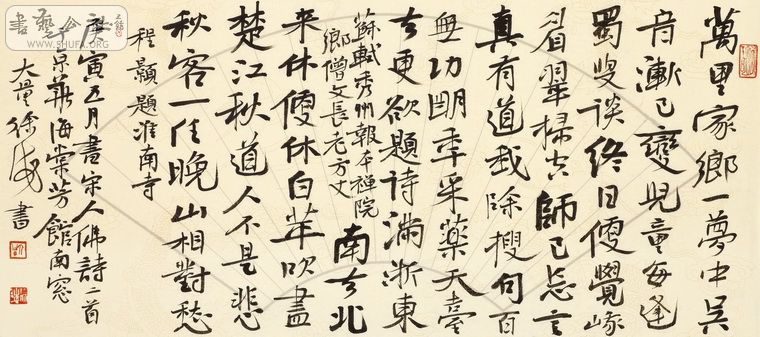 萬里家鄉一夢中吳
音漸已變兒童每逢
蜀叟談終日便覺峨
眉翠掃空師已忘言
真有道我除搜句百
無功明年采藥天臺
去更欲題詩滿浙東
蘇軾秀州報本禪院
鄉僧文長老方丈
南去北
來休便休白蘋吹盡
楚江秋道人不是悲
秋客一任晚山相對愁
程顥題淮南寺
庚寅五月書宋人佛詩二首
京華海棠芳館南窓
大徐書
WWW.SHUFA.ORG